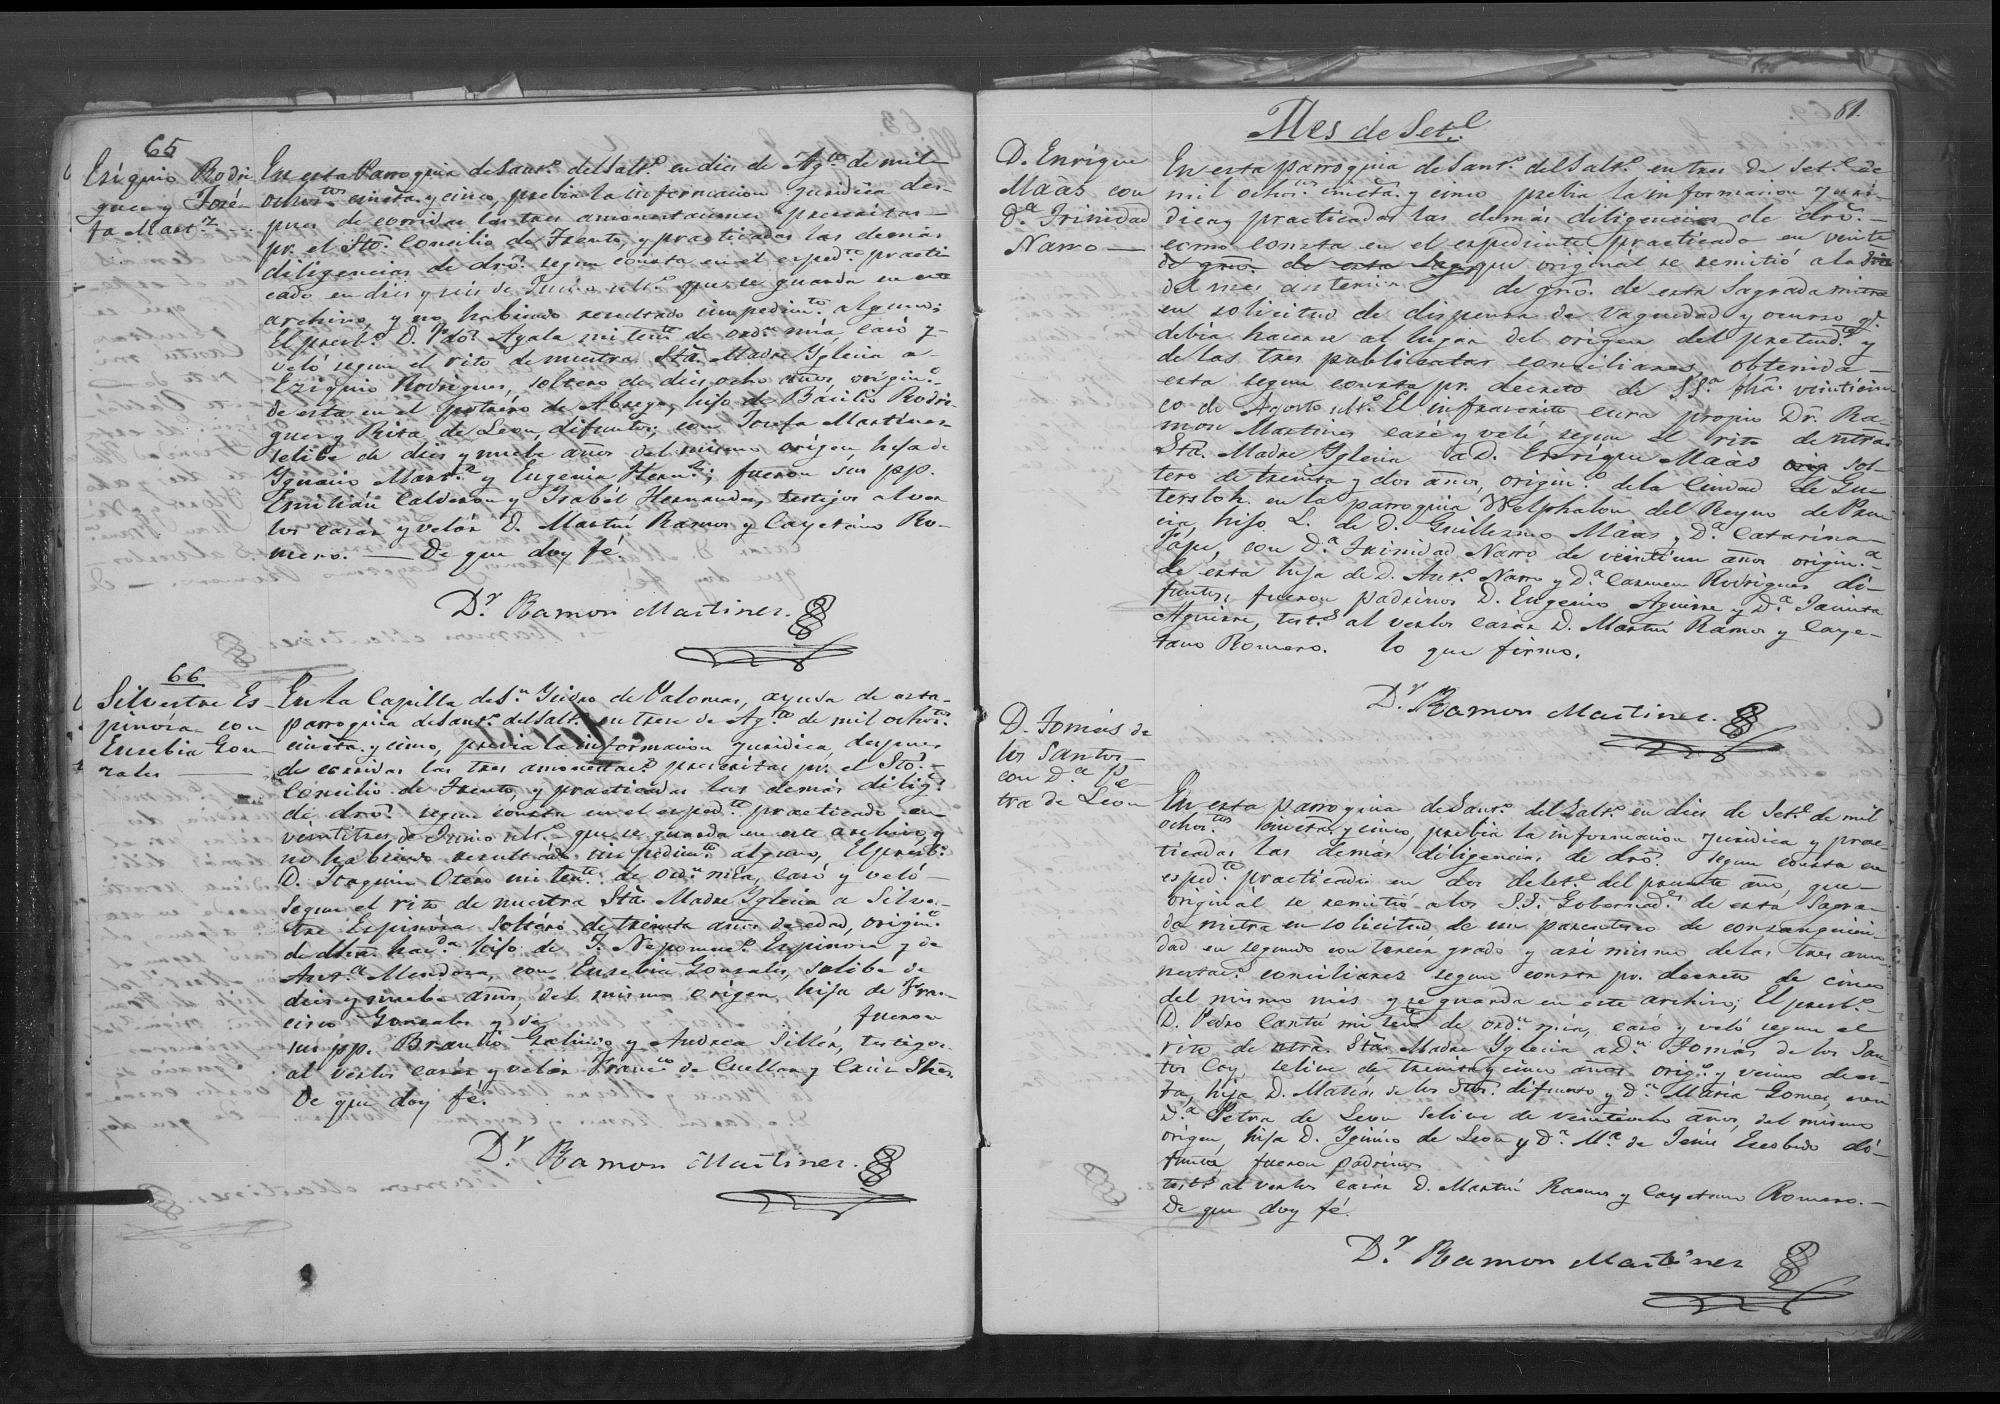 65
Esiquio Rodri
guez y José-
fa Mart.z
En esta Parroquia de Sant.o del Salt.o en dies de Ag.to de mil
ochos.tos cincta. y cinco, prebia la informacion juridica des-
pues de corridas las tres amonestaciones prescritas
pr. el Sto. Concilio de Trento, y practicadas las demás
diligencias de dro. segun consta en el exped.te practi
cado en dies y seis de Junio ult.o que se guarda en este
archivo, y no habiendo resultado impedim.to alguno;
El presb.o D. Ygolo Ayala mi ten.te de ord.n mía, casó y
veló segun el rito de nuestra Sta. Madre Yglecia a
Eziquio Rodrigues, soltero de dies ocho años, origin.o
de esta en el potrero de Abrego, hijo de Bacilio Rodri-
guez y Rita de Leon, difuntos, con Josefa Martines
selibe de dies y nuebe años del mismo origen hija de
Ygnacio Mart.z y Eugenia Hern.z; fueron sus pp.
Emilián Calderon y Ysabél Hernandez, testigos al ver
los casár y velár D. Martin Ramos y Cayetáno Ro-
mero. — De que doy fé.
D.r Ramon Martines.
66
Silvestre Es
pinósa con
Eusebia Gon
zales
En la Capilla de S.n Ysidro de Palomas, ayuda de esta
parroquia de Sant.o del Salt.o en trese de Ag.to de mil ochos.tos
cincta. y cinco, previa la informacion juridica, despues
de corridas las tres amonestac.s prescritas pr. el Sto.
Concilio de Trento, y practicadas las demás dilig.s
de dro. segun consta en el exped.te practicado en
veintitres de Junio ult.o que se guarda en este archivo, y
no habiendo resultado impedim.to alguno, El presb.o
D. Joaquin Otéro mi ten.te de ord.n mía, casó y veló
segun el rito de nuestra Sta. Madre Yglecia a Silves-
tre Espinósa soltéro de treinta años de edad, origin.o
de dha. hac.da hijo de J. Nepomuc.o Espinosa y de
Ant.a Mendosa, con Eusebia Gonzales, selibe de
dies y nuebe años, del mismo origen hija de Fran-
cisco Gonzales y de fueron
sus pp. Braulio Galindo y Andrea Siller, testigos
al verlos casár y velár Franc.co de Cuellar y Cruz
De que doy fé.
D.r Ramon Martines.
81.
Mes de Set.e
D. Enrique
Maas con
D.a Trinidad
Narro
En esta parroquia de Sant.o del Salt.o en tres de Set.e de
mil ochos.tos cincta. y cinco prebia la informacion juri-
dica, y practicadas las demás diligencias de dro.
como consta en el expediente practicado en veinte
de gno. de esta Sag. que original se remitió a la Sria
del mes anterior de gno. de esta Sagrada mitra
en solicitud de dispensa de vaguedad y ocurso q.e
debia hacerse al lugar del origen del pretend.te y
de las tres publicatas conciliares, obtenida
esta segun consta pr. decreto de SSa. fha. veinticin
co de Agosto ult.o El infrascrito cura propio Dr. Ra-
mon Martines casé y velé segun el rito de ntra.
Sta. Madre Yglecia a D. Enrique Maas orig sol-
tero de treinta y dos años, origin.o de la Ciudad de Gue
tersloh. en la parroquia Welphalon del Reyno de Pru
cia, hijo L. de D. Guillermo Maas y D.a Catarina
Pápe, con D.a Trinidad Narro de veintiun años origin.a
de esta hija de D. Ant.o Narro y D.a Carmen Rodrigues di-
funtos, fueron padrinos D. Eugenio Aguirre y D.a Jacinta
Aguirre, test.s al verlos casár D. Martin Ramos y Caye-
tano Romero. lo que firmo.
D.r Ramon Martines.
D. Tomás de
los Santos
con D.a Pe
tra de León
En esta parroquia de Sant.o del Salt.o en dies de Set.e de mil
ochos.tos cincta. y cinco, prebia la informacion juridica y prac
ticadas las demás diligencias de dro. segun consta en
exped.te practicado en dos de Set.e del presente año, que
originál se remitió a los S.S. Gobernad.s de esta Sagra-
da mitra en solicitud de un parentesco de consanguini-
dad en segundo con tercer grado y asi mismo de las tres amo
nestac.s conciliares segun consta pr. decreto de cinco
del mismo més y se guarda en este archivo; El presb.o
D. Pedro Cantú mi ten.te de ord.n mía, casó y veló segun el
rito de ntra. Sta. Madre Yglecia a D.n Tomás de los San-
tos Coy, selive de treinta y cinco años orig.o y vecino de es-
ta, hijo D. Matías de los Stos. difunto y D.a María Gomes, con
D.a Petra de Leon selive de veintiocho años, del mismo
origen, hija D. Iginio de Leon y D.a M.a de Jesus Escobedo di-
funta, fueron padrinos
test.s al verlos casár D. Martin Ramos y Cayetano Romero.
De que doy fé.
D.r Ramon Martines